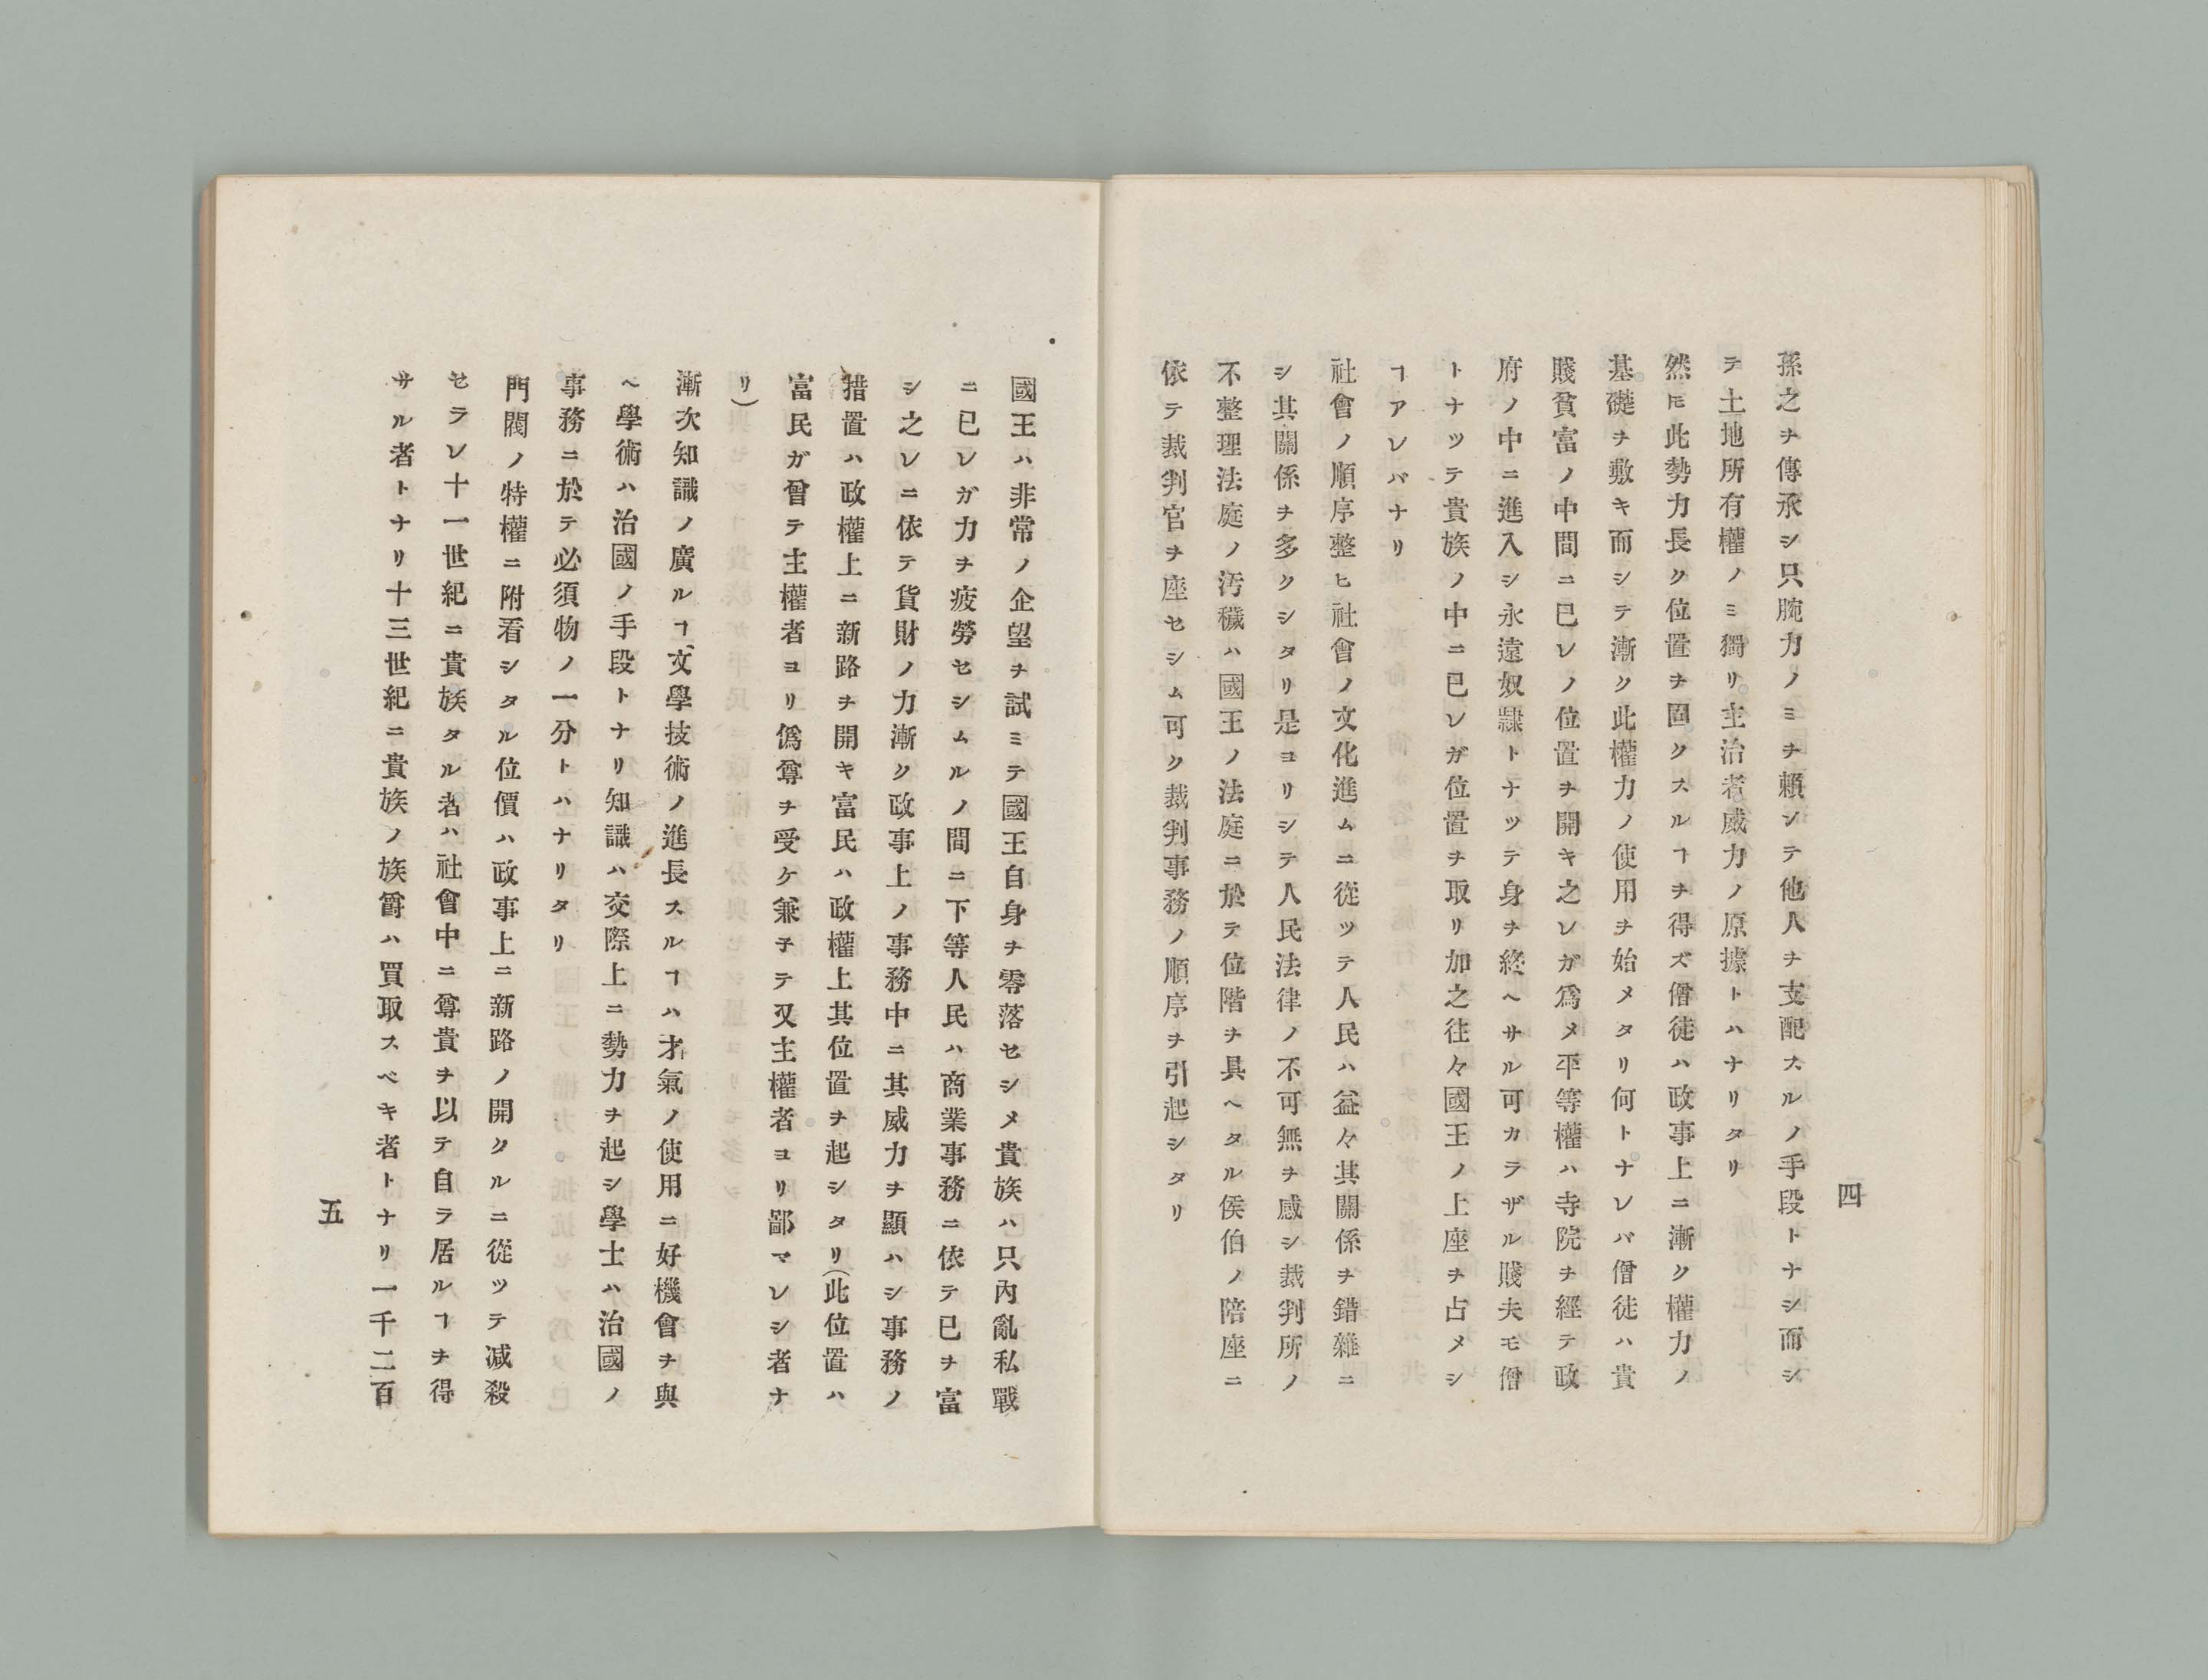 四
孫之ヲ傳承シ只腕力ノミヲ賴ンテ他人ヲ支配スルノ手段トナシ而シ
テ土地所有權ノミ獨リ主治者威力ノ原據トハナリタリ
然𪜈此勢力長ク位置ヲ固クスルヿヲ得ズ僧徒ハ政事上ニ漸ク權力ノ
基礎ヲ敷キ而シテ漸ク此權力ノ使用ヲ始メタリ何トナレバ僧徒ハ貴
賤貧富ノ中間ニ已レノ位置ヲ開キ之レガ爲メ平等權ハ寺院ヲ經テ政
府ノ中ニ進入シ永遠奴隸トナツテ身ヲ終ヘサル可カラザル賤夫モ僧
トナツテ貴族ノ中ニ已レガ位置ヲ取リ加之往々國王ノ上座ヲ占メシ
ヿアレバナリ
社會ノ順序整ヒ社會ノ文化進ムニ從ツテ人民ハ益々其關係ヲ錯雜ニ
シ其關係ヲ多クシタリ是ヨリシテ人民法律ノ不可無ヲ感シ裁判所ノ
不整理法庭ノ汚穢ハ國王ノ法庭ニ於テ位階ヲ具ヘタル侯伯ノ陪座ニ
依テ裁判官ヲ座セシム可ク裁判事務ノ順序ヲ引起シタリ
國王ハ非常ノ企望ヲ試ミテ國王自身ヲ零落セシメ貴族ハ只內亂私戰
ニ已レガ力ヲ疲勞セシムルノ間ニ下等人民ハ商業事務ニ依テ已ヲ富
シ之レニ依テ貨財ノ力漸ク政事上ノ事務中ニ其威力ヲ顯ハシ事務ノ
措置ハ政權上ニ新路ヲ開キ富民ハ政權上其位置ヲ起シタリ(此位置ハ
富民ガ曾テ主權者ヨリ僞尊ヲ受ケ兼子テ又主權者ヨリ鄙マレシ者ナ
リ)
漸次知識ノ廣ルヿ、文學技術ノ進長スルヿハ才氣ノ使用ニ好機會ヲ與
ヘ學術ハ治國ノ手段トナリ知識ハ交際上ニ勢力ヲ起シ學士ハ治國ノ
事務ニ於テ必須物ノ一分トハナリタリ
門閥ノ特權ニ附看シタル位價ハ政事上ニ新路ノ開クルニ從ツテ減殺
セラレ十一世紀ニ貴族タル者ハ社會中ニ尊貴ヲ以テ自ラ居ルヿヲ得
サル者トナリ十三世紀ニ貴族ノ族爵ハ買取スベキ者トナリ一千二百
五